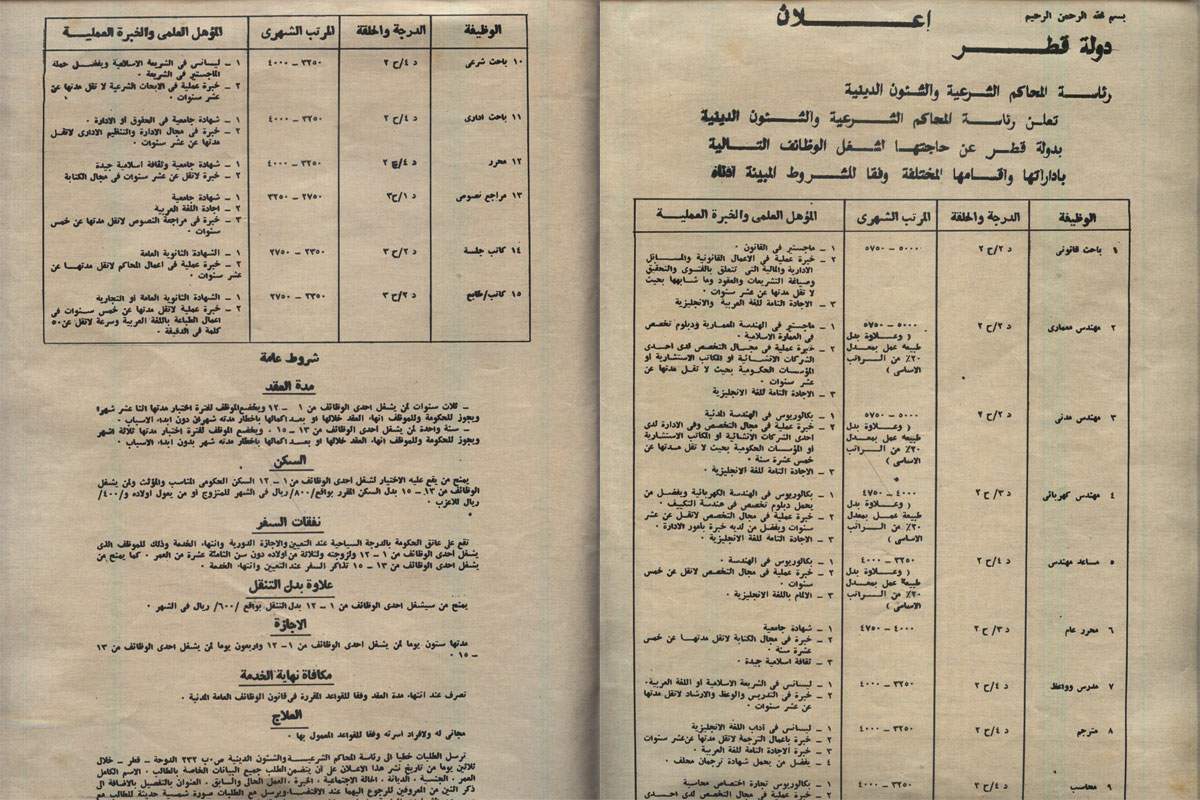 بسم الله الرحمن الرحيم
إعلان
دولة قطر
رئاسة المحاكم الشرعية والشئون الدينية
تعلن رئاسة المحاكم الشرعية والشئون الدينية
بدولة قطر عن حاجتها لشغل الوظائف التالية
باداراتها واقسامها المختلفة وفقا للشروط المبينة ادناه
الوظيفة الدرجة والحلقة المرتب الشهرى المؤهل العلمى والخبرة العملية
١ باحث قانونى د ٢/ح ٢ ٥٠٠٠ – ٥٧٥٠ ١ – ماجستير فى القانون ٠
٢ – خبرة عملية فى الاعمال القانونية والمسائل
الادارية والمالية التى تتعلق بالفتوى والتحقيق
وصياغة التشريعات والعقود وما شابهها بحيث
لا تقل مدتها عن عشر سنوات ٠
٣ – الاجادة التامة للغة العربية والانجليزية
٢ مهندس معمارى د ٢/ح ٢ ٥٠٠٠ – ٥٧٥٠ ١ – ماجستير فى الهندسة المعمارية ودبلوم تخصص
( وعلاوة بدل فى العمارة الاسلامية ٠
طبيعة عمل بمعدل ٢ – خبرة عملية فى مجال التخصص لدى احدى
٢٠٪ من الراتب الشركات الانشائية او المكاتب الاستشارية او
الاساسى ) المؤسسات الحكومية بحيث لا تقل مدتها عن
عشر سنوات ٠
٣ – الاجادة التامة للغة الانجليزية
٣ مهندس مدنى د ٢/ح ٢ ٥٠٠٠ – ٥٧٥٠ ١ – بكالوريوس فى الهندسة المدنية
( وعلاوة بدل ٢ – خبرة عملية فى مجال التخصص وفى الادارة لدى
طبيعة عمل بمعدل احدى الشركات الانشائية او المكاتب الاستشارية
٢٠٪ من الراتب او المؤسسات الحكومية بحيث لا تقل مدتها عن
الاساسى ) خمس عشرة سنة ٠
٣ – الاجادة التامة للغة الانجليزية ٠
٤ مهندس كهربائى د ٣/ح ٢ ٤٠٠٠ – ٤٧٥٠ ١ – بكالوريوس فى الهندسة الكهربائية ويفضل من
( وعلاوة بدل يحمل دبلوم تخصص فى هندسة التكييف ٠
طبيعة عمل بمعدل ٢ – خبرة عملية فى مجال التخصص لاتقل عن عشر
٢٠٪ من الراتب سنوات ويفضل من لديه خبرة بامور الادارة ٠
الاساسى ) ٣ – الاجادة التامة للغة الانجليزية ٠
٥ مساعد مهندس د ٤/ح ٢ ٣٢٥٠ – ٤٠٠٠ ١ – بكالوريوس فى الهندسة ٠
( وعلاوة بدل ٢ – خبرة عملية فى مجال التخصص لاتقل عن خمس
طبيعة عمل بمعدل سنوات ٠
٢٠٪ من الراتب ٣ – الالمام باللغة الانجليزية ٠
الاساسى )
٦ محرر عام د ٣/ح ٢ ٤٠٠٠ – ٤٧٥٠ ١ – شهادة جامعية
٢ – خبرة فى مجال الكتابة لاتقل مدتها عن خمس
عشرة سنة ٠
٣ – ثقافة اسلامية جيدة ٠
٧ مدرس وواعظ د ٤/ح ٢ ٣٢٥٠ – ٤٠٠٠ ١ – ليسانس فى الشريعة الاسلامية او اللغة العربية٠
٢ – خبرة فى التدريس والوعظ والارشاد لاتقل مدتها
عن عشر سنوات ٠
٨ مترجم د ٤/ح ٢ ٣٢٥٠ – ٤٠٠٠ ١ – ليسانس فى اداب اللغة الانجليزية
٢ – خبرة باعمال الترجمة لاتقل مدتها عن عشر سنوات
٣ – الاجادة التامة للغة العربية ٠
٤ – يفضل من يحمل شهادة ترجمان محلف ٠
٩ محاسب د ٤/ح ٢ ٣٢٥٠ – ٤٠٠٠ ١ – بكالوريوس تجارة اختصاص محاسبة
٢ – خبرة عملية فى مجال التخصص لدى احدى
الوظيفة الدرجة والحلقة المرتب الشهرى المؤهل العلمى والخبرة العملية
١٠ باحث شرعى د ٤/ح ٢ ٣٢٥٠ – ٤٠٠٠ ١ – ليسانس فى الشريعة الاسلامية ويفضل حمله
الماجستير فى الشريعة ٠
٢ – خبرة عملية فى الابحاث الشرعية لا تقل مدتها عن
عشر سنوات ٠
١١ باحث ادارى د ٤/ح ٢ ٣٢٥٠ – ٤٠٠٠ ١ – شهادة جامعية فى الحقوق او الادارة ٠
٢ – خبرة فى مجال الادارة والتنظيم الادارى لاتقل
مدتها عن عشر سنوات ٠
١٢ محرر د ٤/ح ٢ ٣٢٥٠ – ٤٠٠٠ ١ – شهادة جامعية وثقافة اسلامية جيدة
٢ – خبرة لاتقل عن عشر سنوات فى مجال الكتابة
١٣ مراجع نصوصى د ١/ح٣ ٢٧٥٠ – ٣٢٥٠ ١ – شهادة جامعية
٢ – اجادة اللغة العربية
٣ – خبرة فى مراجعة النصوص لاتقل مدتها عن خمس
سنوات ٠
١٤ كاتب جلسة د ٢/ح ٣ ٢٣٥٠ – ٢٧٥٠ ١ – الشهادة الثانوية العامة
٢ – خبرة عملية فى اعمال المحاكم لاتقل مدتها عن
عشر سنوات ٠
١٥ كاتب/طابع د ٢/ح ٣ ٢٣٥٠ – ٢٧٥٠ ١ – الشهادة الثانوية العامة او التجارية
٢ – خبرة عملية لاتقل مدتها عن خمس سنوات فى
اعمال الطباعة باللغة العربية وسرعة لاتقل عن ٥٠
كلمة فى الدقيقة ٠
شروط عامة
مدة العقد
– ثلاث سنوات لمن يشغل احدى الوظائف من ١ – ١٢ ويخضع الموظف لفترة اختبار مدتها اثنا عشر شهرا
ويجوز للحكومة وللموظف انهاء العقد خلالها او بعد اكمالها باخطار مدته شهران دون ابداء الاسباب ٠
– سنة واحدة لمن يشغل احدى الوظائف من ١٣ – ١٥ ٠ ويخضع الموظف لفترة اختبار مدتها ثلاثة اشهر
ويجوز للحكومة وللموظف انهاء العقد خلالها او بعد اكمالها باخطار مدته شهر بدون ابداء الاسباب ٠
السكن
يمنح من يقع عليه الاختيار لشغل احدى الوظائف من ١ – ١٢ السكن الحكومى المناسب والمؤثث ولمن يشغل
الوظائف من ١٣ – ١٥ بدل السكن المقرر بواقع/٨٠٠/ ريال فى الشهر للمتزوج او من يعول اولاده و/٤٠٠/
ريال للاعزب ٠
نفقات السفر
تقع على عاتق الحكومة بالدرجة السياحية عند التعيين والاجازة الدورية وانتهاء الخدمة وذلك للموظف الذى
يشغل احدى الوظائف من ١ – ١٢ ولزوجته ولثلاثة من اولاده دون سن الثامنة عشرة من العمر ٠ كما يمنح من
يشغل احدى الوظائف من ١٣ – ١٥ تذاكر السفر عند التعيين وانتهاء الخدمة ٠
علاوة بدل التنقل
يمنح من سيشغل احدى الوظائف من ١ – ١٢ بدل التنقل بواقع /٦٠٠/ ريال فى الشهر ٠
الاجازة
مدتها ستون يوما لمن يشغل احدى الوظائف من ١ – ١٢ واربعون يوما لمن يشغل احدى الوظائف من ١٣
– ١٥ ٠
مكافأة نهاية الخدمة
تصرف عند انتهاء مدة العقد وفقا للقواعد المقررة فى قانون الوظائف العامة المدنية ٠
العلاج
مجانى له ولافراد اسرته وفقا للقواعد المعمول بها ٠
ترسل الطلبات خطيا الى رئاسة المحاكم الشرعية والشئون الدينية ص٠ب ٢٣٢ الدوحة – قطر – خلال
ثلاثين يوما من تاريخ نشر هذا الاعلان على ان يتضمن الطلب جميع البيانات الخاصة بالطالب ٠ الاسم الكامل
العمر ٠ الجنسية ٠ الديانة ٠ الحالة الاجتماعية ٠ الخبرة ٠ العمل الحالى والسابق ٠ العنوان بالتفصيل بالاضافة الى
ذكر اثنين من المعروفين للرجوع اليهما عند الاقتضاء٠ ويرسل مع الطلبات صورة شمسية حديثة للطالب مع